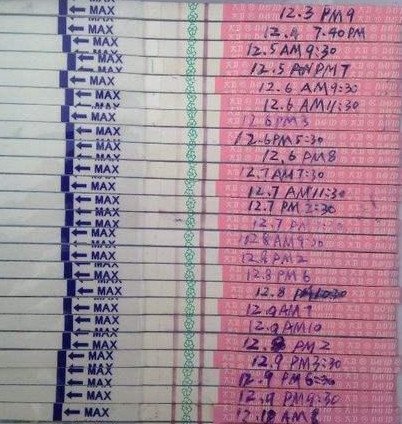 MAX 12.3 PM9
MAX 12.4 7.40PM
MAX 12.5 AM9:30
MAX 12.5 PM7
MAX 12.6 AM9:30
MAX 12.6 AM11:30
MAX 12.6PM3
MAX 12.6PM5:30
MAX 12.6 PM8
MAX 12.7AM7:30
MAX 12.7 AM11:30
MAX 12.7 PM 2:30
MAX 12.7 PM
MAX 12.8AM9:30
MAX 12.8PM2
MAX 12.8 PM 6
MAX 12.8
MAX 12.9AM7
MAX 12.9AM10
MAX PM2
MAX 12.9 PM3:30
MAX 12.9 PM6:30
MAX 12.9 PM9:30
MAX 12.10 AM